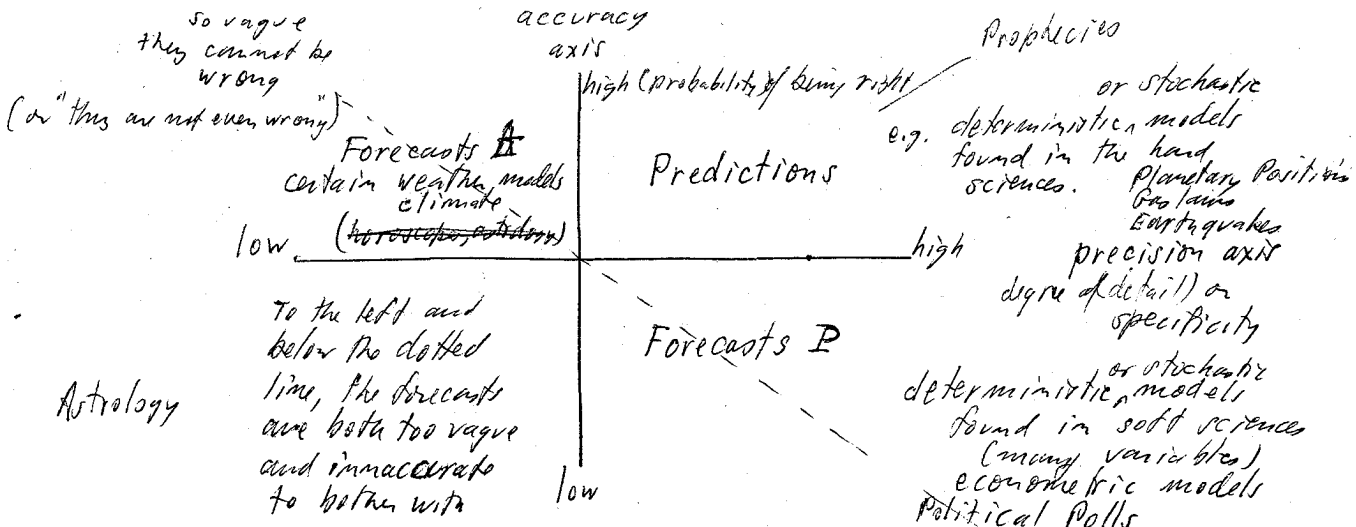 so vague
they cannot be
wrong
(or "they are not even wrong")
accuracy
axis
high (probability) of being right
Prophecies
Forecasts A
certain weather, models
climate
(horoscopes, astrology)
Predictions
or stochastic
e.g. deterministic ‸ models
found in the hard
sciences.
Planetary Positions
Gas laws
Earthquakes
low
high
precision axis
degree of (detail) or
specificity
To the left and
below the dotted
line, the forecasts
are both too vague
and innaccurate
to bother with
Astrology
Forecasts P
or stochastic
deterministic ‸ models
found in soft sciences
(many variables)
econometric models
Political Polls
low